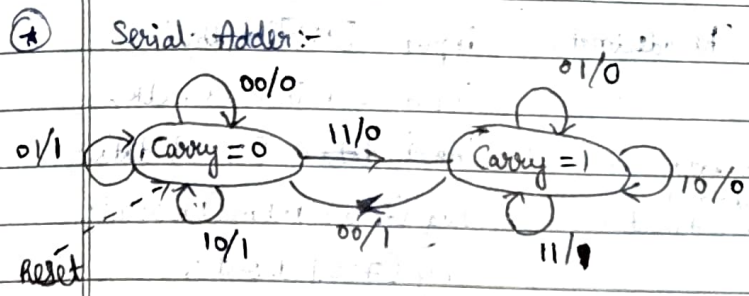 * Serial Adder:-
00/0
01/0
01/1
Carry = 0
11/0
Carry = 1
10/0
10/1
00/1
11/1
Reset